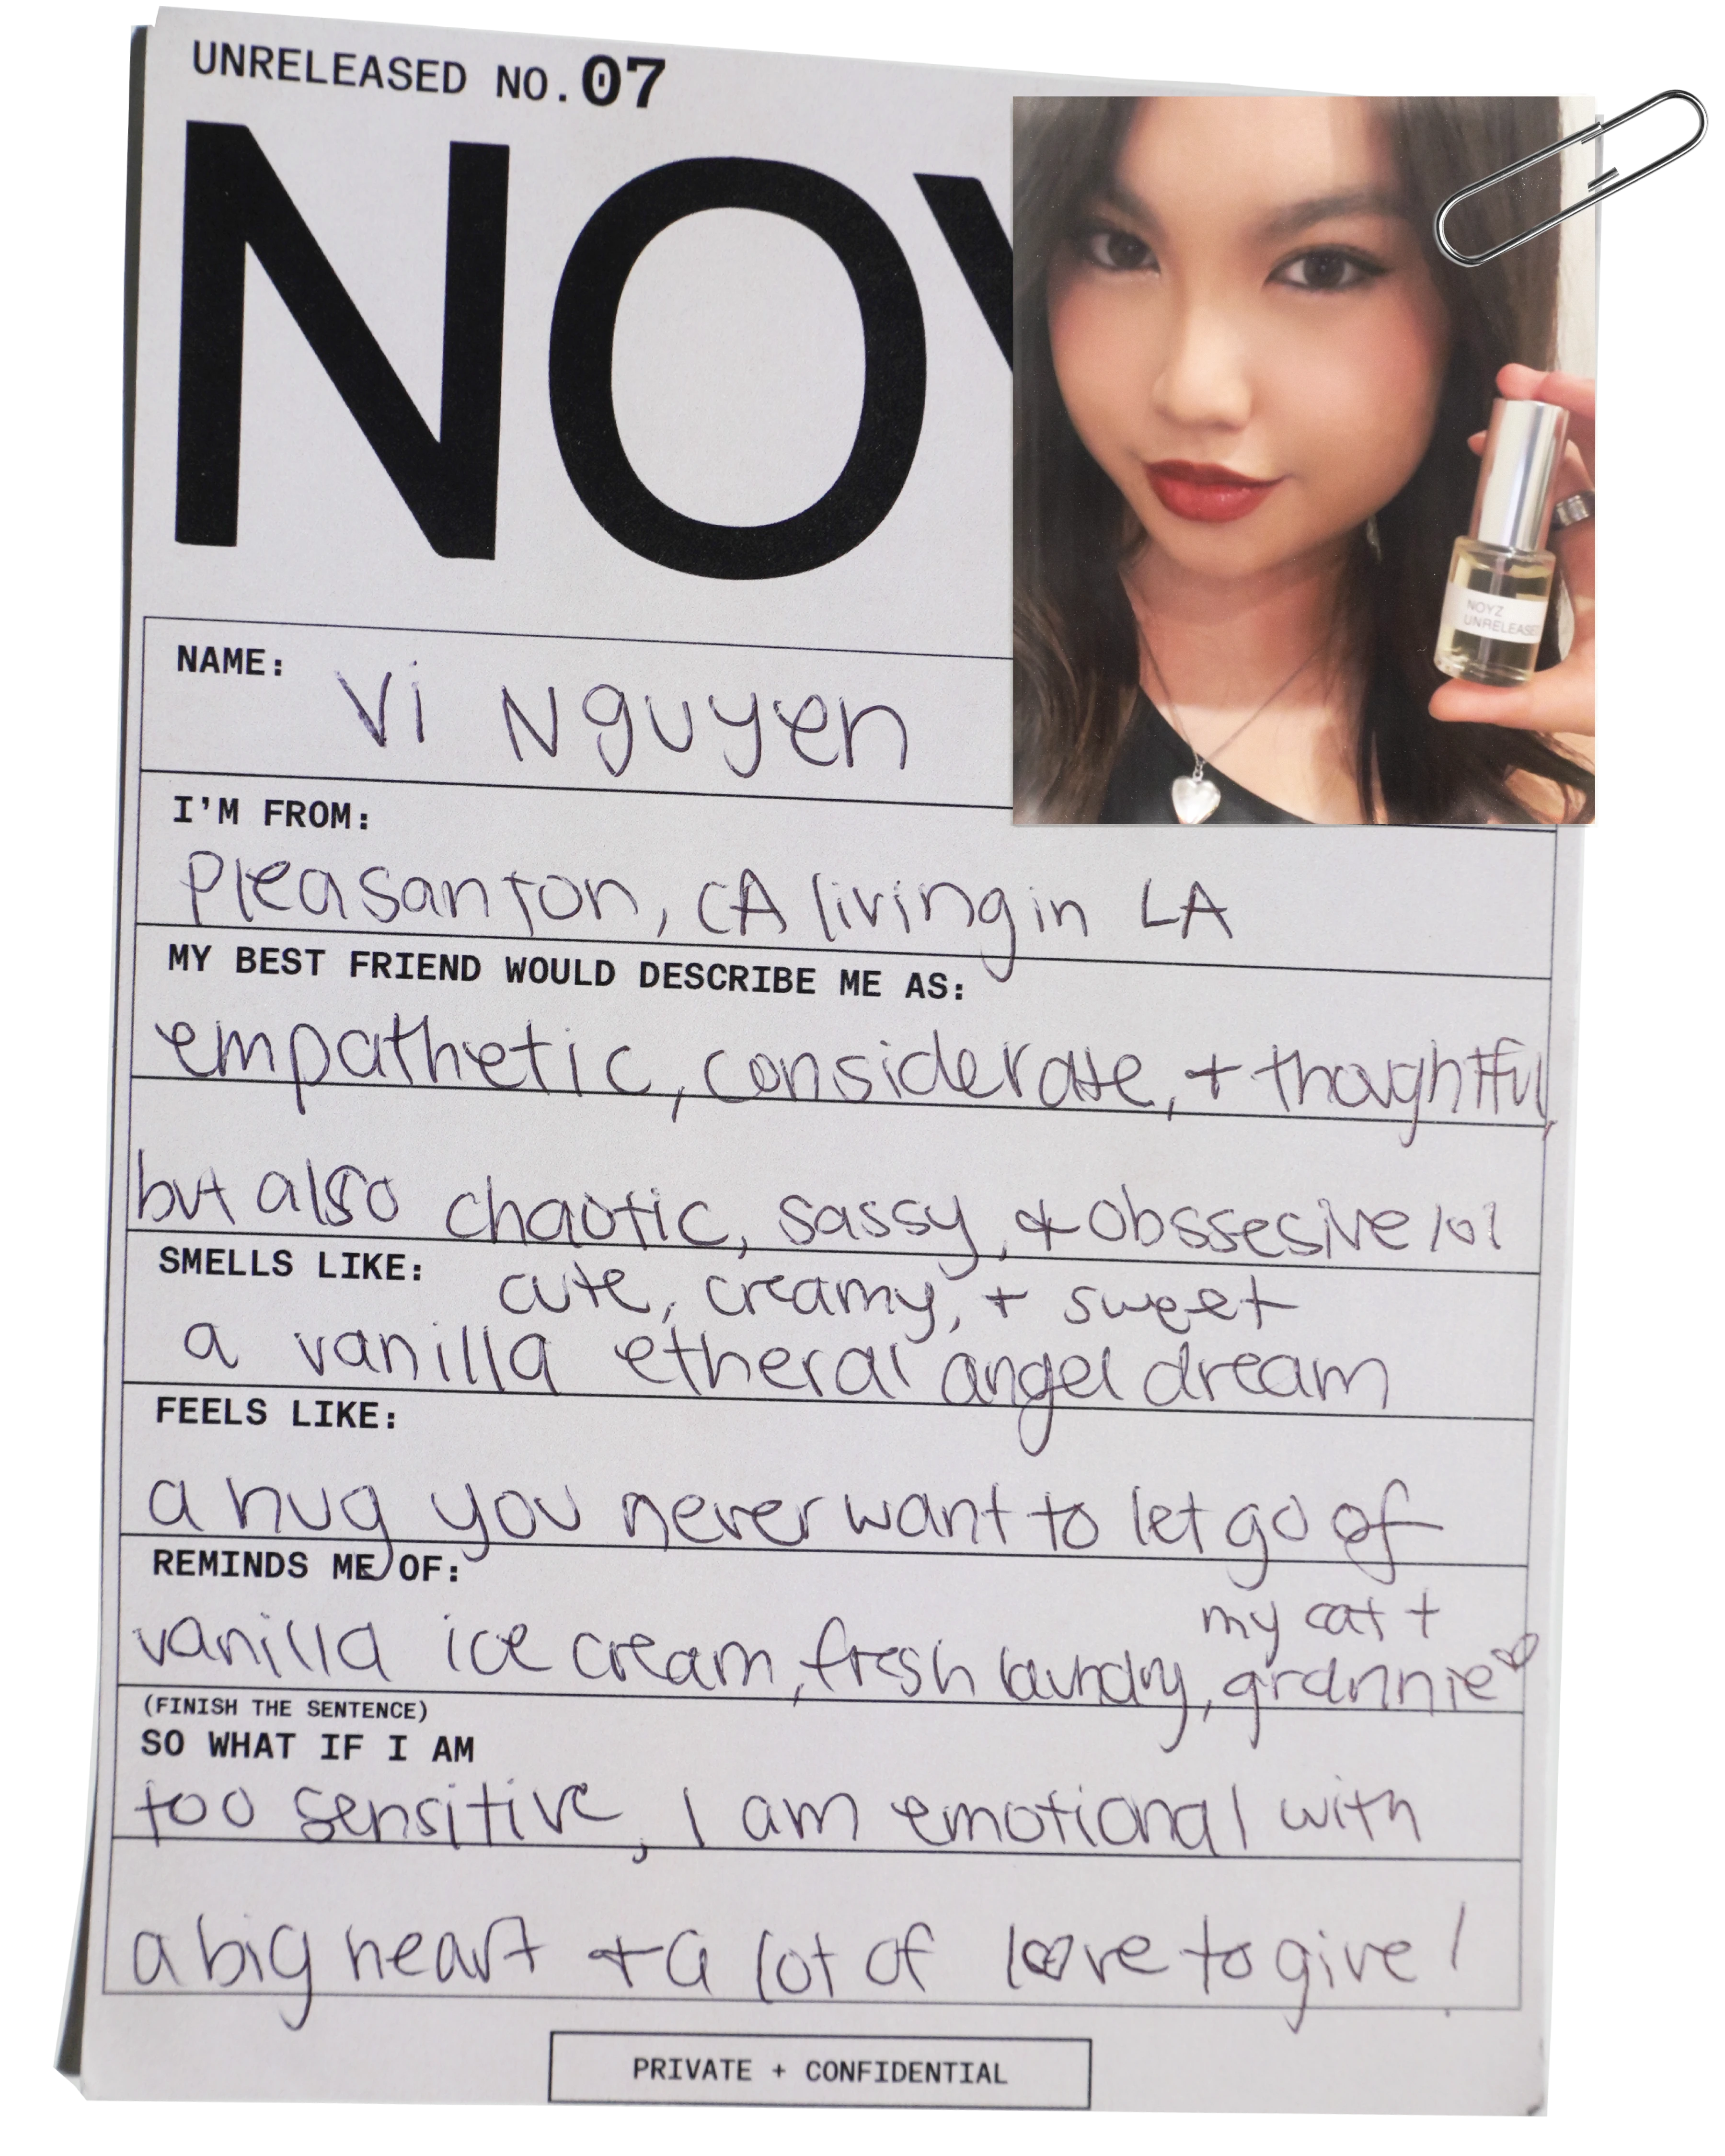 UNRELEASED NO.07
NOY
NOYZ
UNRELEASED
NAME: Vi Nguyen
I'M FROM:
Pleasanton, CA living in LA
MY BEST FRIEND WOULD DESCRIBE ME AS:
empathetic, considerate, + thoughtful,
but also chaotic, sassy, & obssessive lol
SMELLS LIKE: cute, creamy, + sweet
a vanilla etheral angel dream
FEELS LIKE:
a hug you never want to let go of
REMINDS ME OF:
my cat +
vanilla ice cream, fresh laundry, grannie
(FINISH THE SENTENCE)
SO WHAT IF I AM
too sensitive, I am emotional with
a big heart + a lot of love to give!
PRIVATE + CONFIDENTIAL